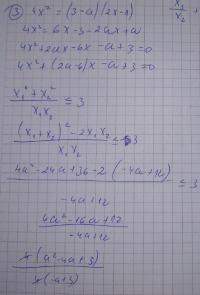 ③ 4x² = (3-a)(2x-1)
x₁
x₂ +
4x² = 6x-3-2ax+a
4x²+2ax-6x -a+3=0
4x²+(2a-6)x -a+3=0
x₁²+x₂² / x₁x₂ ≤ 3
(x₁+x₂)²-2x₁x₂ / x₁x₂ ≤ 3
4a²-24a+36-2(-4a+12) / -4a+12 ≤ 3
4a²-16a+12 / -4a+12
4(a²-4a+3) / 4(-a+3)